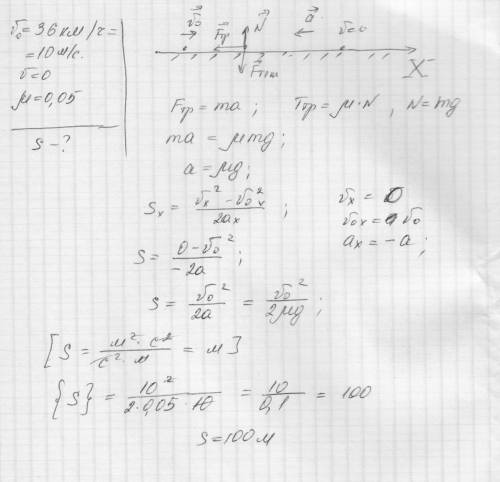 v₀ = 36 км/ч =
= 10 м/с.
v = 0
μ = 0,05
S - ?
v₀ Fтр N a v = 0
Fтяж X
Fтр = ma ; Tтр = μ·N , N = mg
ma = μmg ;
a = μg ;
Sₓ = (vₓ² - v₀ₓ²) / 2aₓ ; vₓ = 0
v₀ₓ = v₀
S = (0 - v₀²) / -2a ; aₓ = -a ;
S = v₀² / 2a = v₀² / 2μg ;
[S = м²·с² / с²·м = м]
{S} = 10² / 2·0,05·10 = 10 / 0,1 = 100
S = 100 м